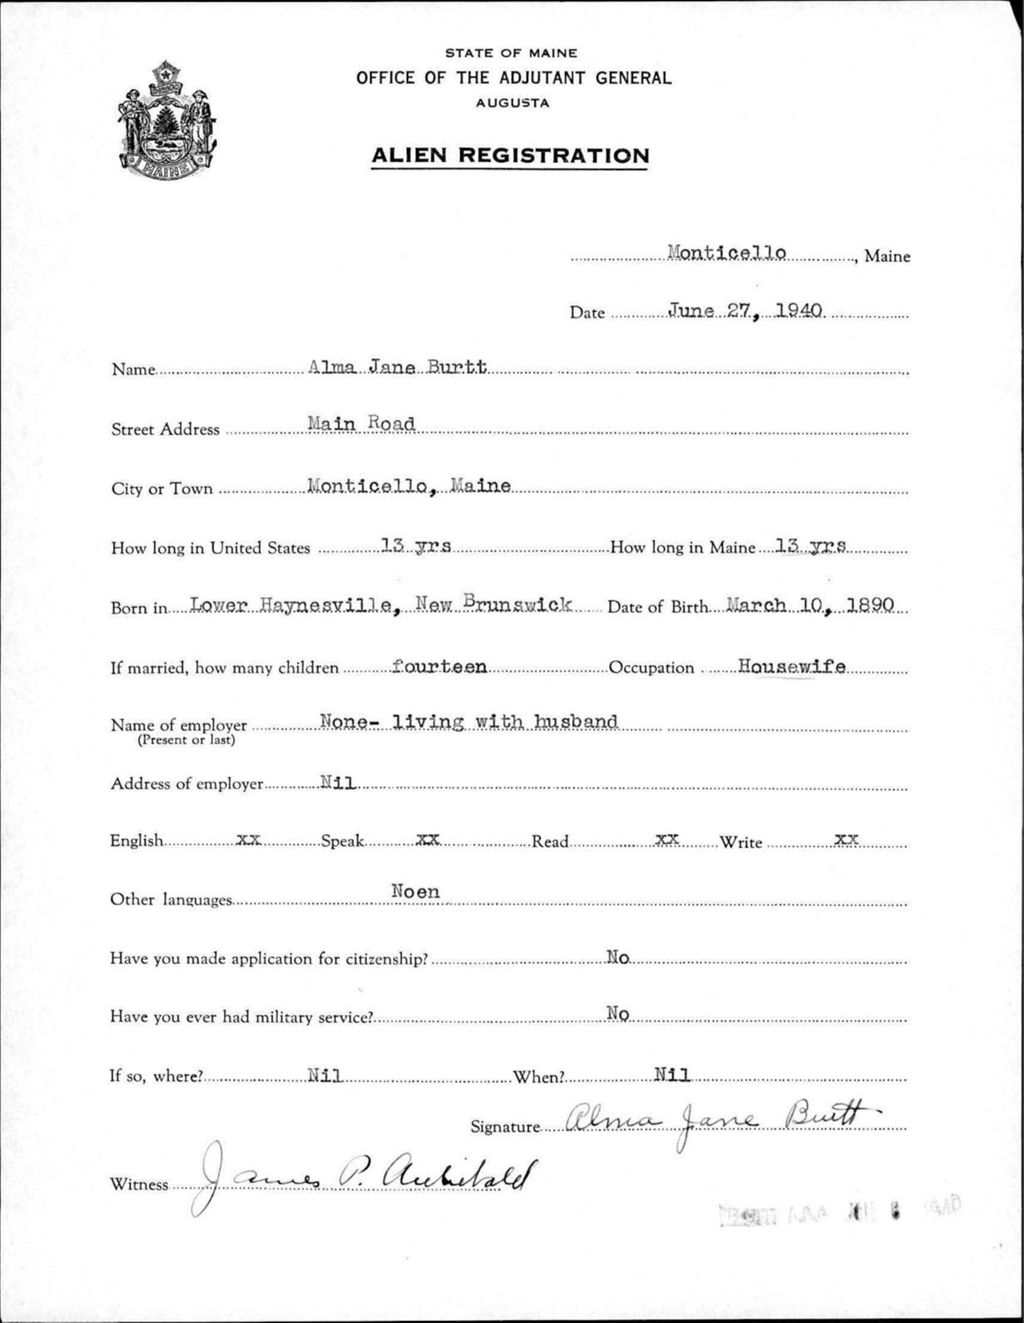 STATE OF MAINE
OFFICE OF THE ADJUTANT GENERAL
AUGUSTA
ALIEN REGISTRATION
MAINE
Monticello, Maine
Date June 27, 1940
Name Alma Jane Burtt
Street Address Main Road
City or Town Monticello, Maine
How long in United States 13 yrs How long in Maine 13 yrs
Born in Lower Haynesville, New Brunswick Date of Birth March 10, 1890
If married, how many children fourteen Occupation Housewife
Name of employer None- living with husband
(Present or last)
Address of employer Nil
English xx Speak xx Read xx Write xx
Other languages Noen
Have you made application for citizenship? No
Have you ever had military service? No
If so, where? Nil When? Nil
Signature Alma Jane Burtt
Witness James P. Archibald